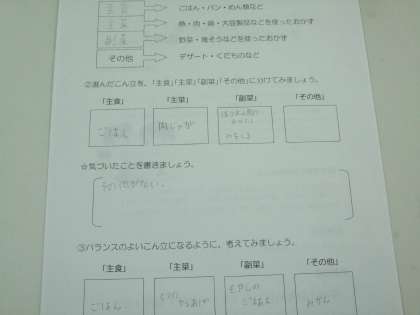 主食
ごはん・パン・めん類など
主菜
魚・肉・卵・大豆製品などを使ったおかず
副菜
野菜・海そうなどを使ったおかず
その他
デザート・くだものなど
②選んだこん立を、「主食」「主菜」「副菜」「その他」に分けてみましょう。
「主食」 「主菜」 「副菜」 「その他」
ごはん 肉じゃが
みそしる
☆気づいたことを書きましょう。
その他がない。
③バランスのよいこん立になるように、考えてみましょう。
「主食」 「主菜」 「副菜」 「その他」
ごはん からあげ もやしの みかん